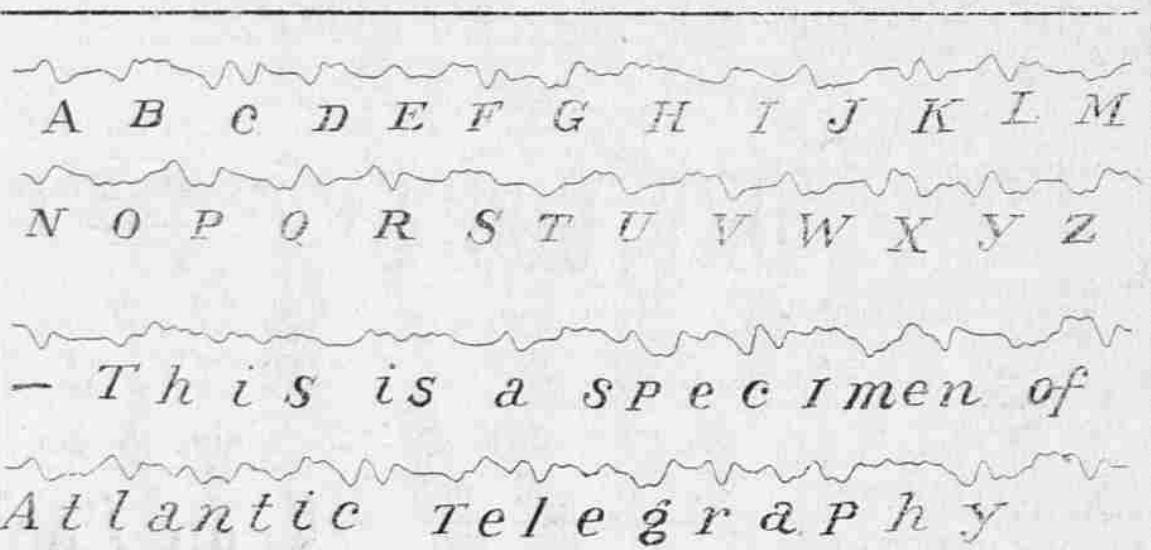 A B C D E F G H I J K L M
N O P Q R S T U V W X Y Z
— This is a specimen of
Atlantic Telegraphy